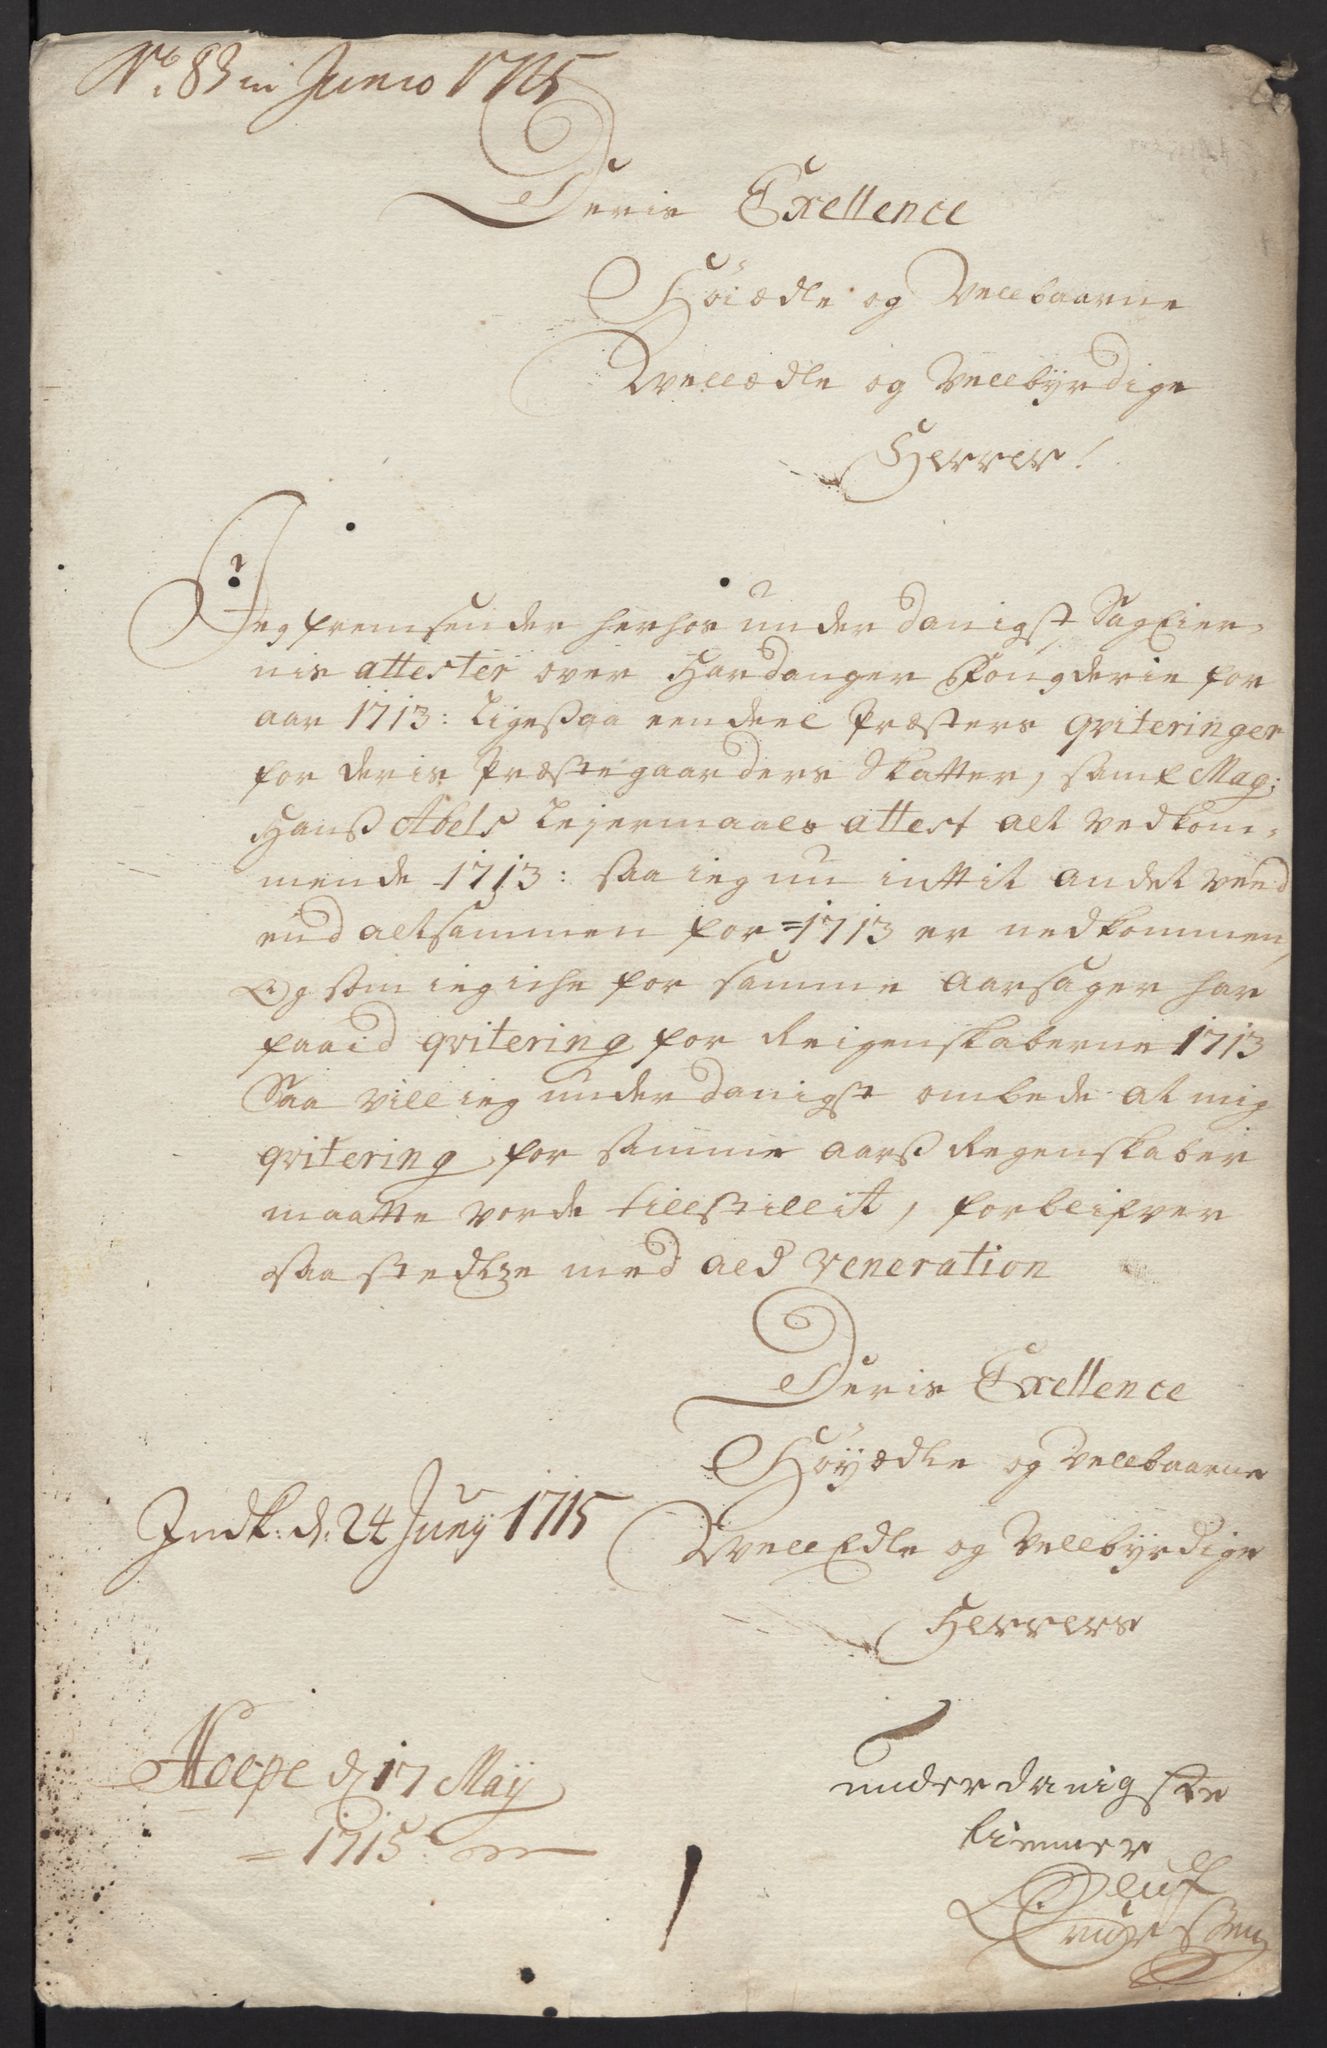 No. 83 in Junio 1715
Deris Exellence
Høiædle og Vellbaarne
Wellædle og Vellbÿrdige
Herrer!
Jeg fremsender herhos underdanigst Sagefier-
nis attester over Hardanger Fougderie for
aar 1713: ligesaa een deel Præsters qviteringer
for deris Præstegaarders Skatter, samt Mag:
Hanß Abels Lejermaals attest alt vedkom-
mende 1713: saa ieg nu inttit andet veed
end altsammen for 1713 er nedkommen,
Og som ieg iche for samme aarsager har
faaid qvitering for Reigenskaberne 1713
Saa vill ieg underdanigst ombede at mig
qvitering for samme aarß Regenskaber
maatte vorde tillstillit, forblifver
saa stedtze med all veneration
Deris Exellence
Høÿædle og Vellbaarne
Indk: d: 24 Junÿ 1715
WellEdle og Vellbÿrdige
Herrers
Hoepe d 17 Maÿ
1715
underdanigste
tienner
Oluf